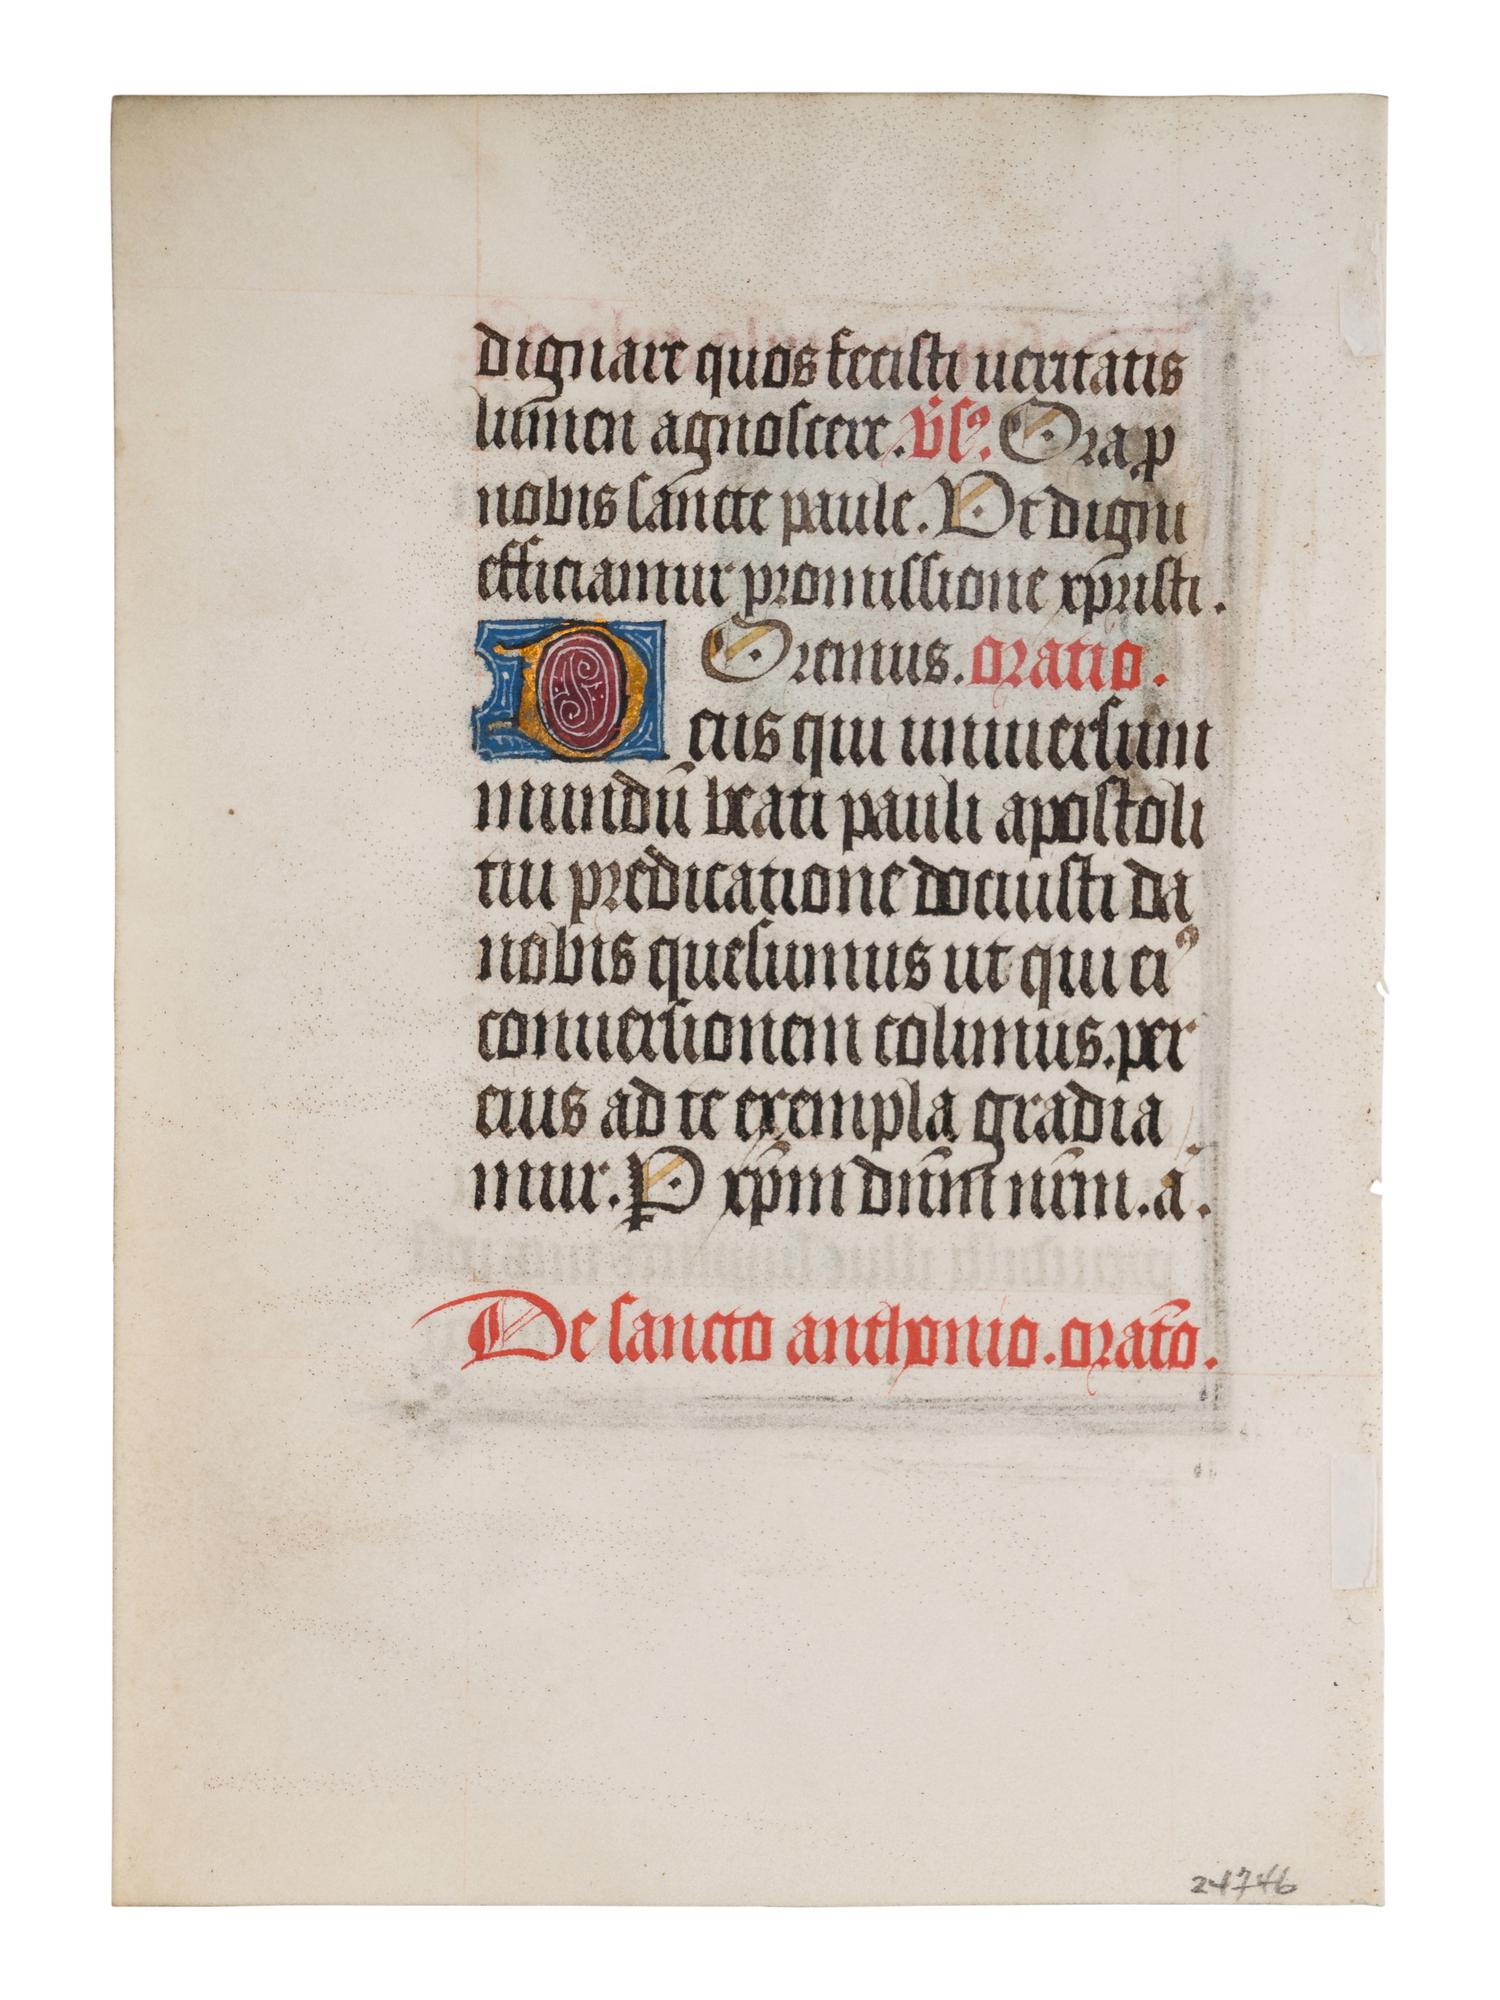 dignare quos fecisti ueritatis
lumen agnoscere. v̇sꝰ. Ora p
nobis sancte paule. Vt digni
efficiamur promissione xpristi.
Oremus. oratio.
Deus qui uniuersum
mundū beati pauli apostoli
tui predicatione docuisti da
nobis quesumus ut qui eiꝰ
conuersionem colimus. per
eius ad te exempla gradia
mur. P xp̄m dn̄m nr̄m. ā.
De sancto anthonio. orato̅.
24746